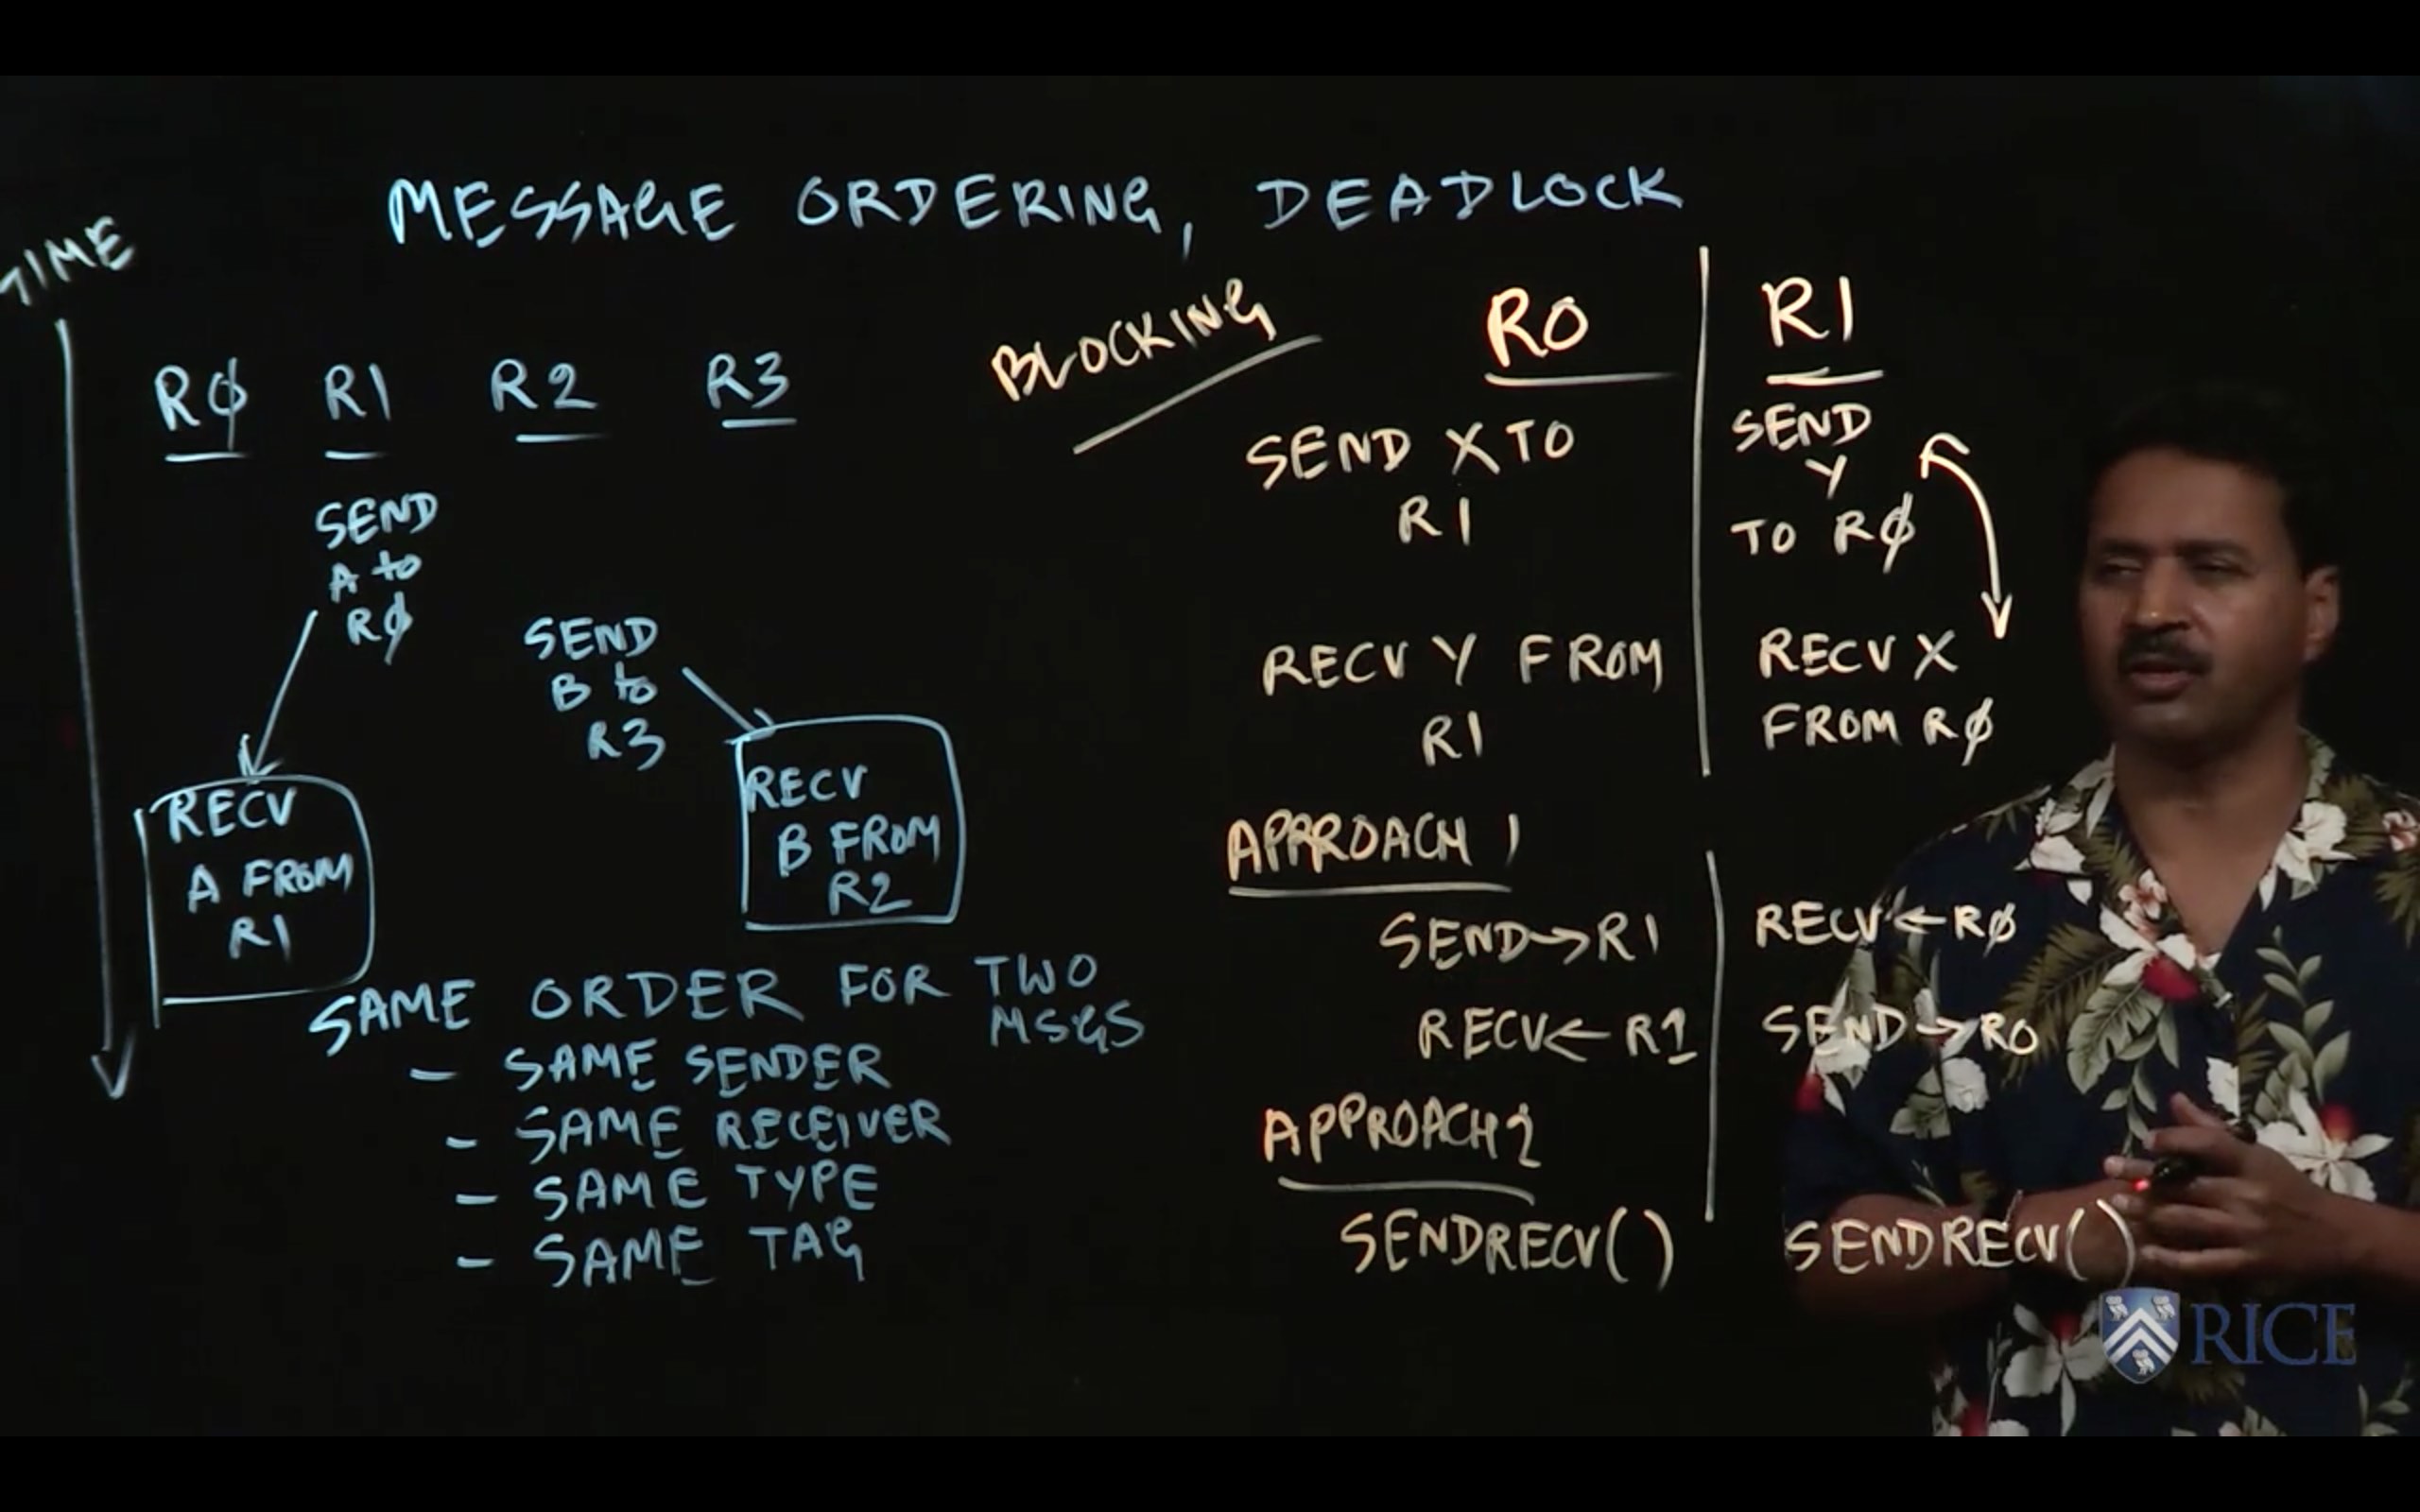 MESSAGE ORDERING, DEADLOCK
TIME
RØ R1 R2 R3
SEND
A to
RØ
SEND
B to
R3
RECV
A FROM
R1
RECV
B FROM
R2
SAME ORDER FOR TWO
MSGS
- SAME SENDER
- SAME RECEIVER
- SAME TYPE
- SAME TAG
BLOCKING
R0
R1
SEND X TO
R1
RECV Y FROM
R1
SEND
Y
TO RØ
RECV X
FROM RØ
APPROACH 1
SEND→R1
RECV←RØ
RECV←R1
SEND→R0
APPROACH 2
SENDRECV()
SENDRECV()
RICE